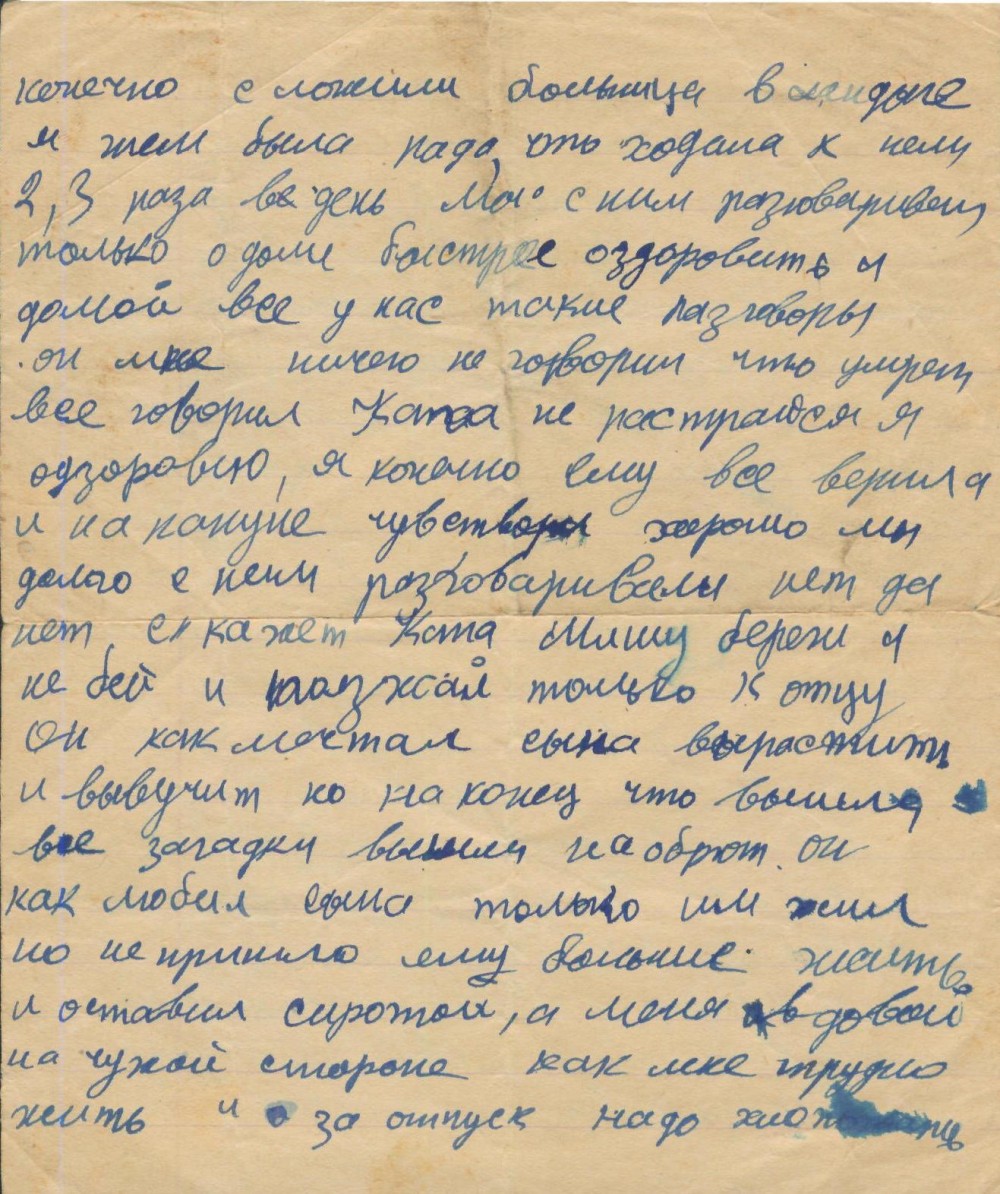 конечно сложили больница в
и жем была рада, что ходала к нему
2, 3 раза в день Мы с ним разговариваем
только о доме быстрее оздоровить и
домой все у нас такие разговоры
он мне ничего не говорил что умрет
все говорил Катя не растраюся я
одзоровию, я конечно ему все верила
и на кануне чувствовал хорошо мы
долго с ним разговаривали нет да
нет, скажет Катя Мишу береги и
не бей и только к отцу
Он как мечтал сына вырастить
и вывучит но на конец что вышло
все загадки вышли наоброт. он
как любил сына только им жил
но не пришло ему больше жить.
и оставил сиротой, а меня вдовой
на чужой стороне как мне трудно
жить и за отпуск надо